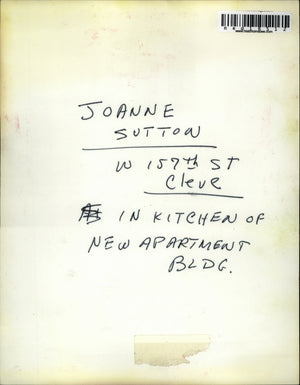 JOANNE
SUTTON
W 157th ST
Cleve
IN KITCHEN OF
NEW APARTMENT
BLDG.